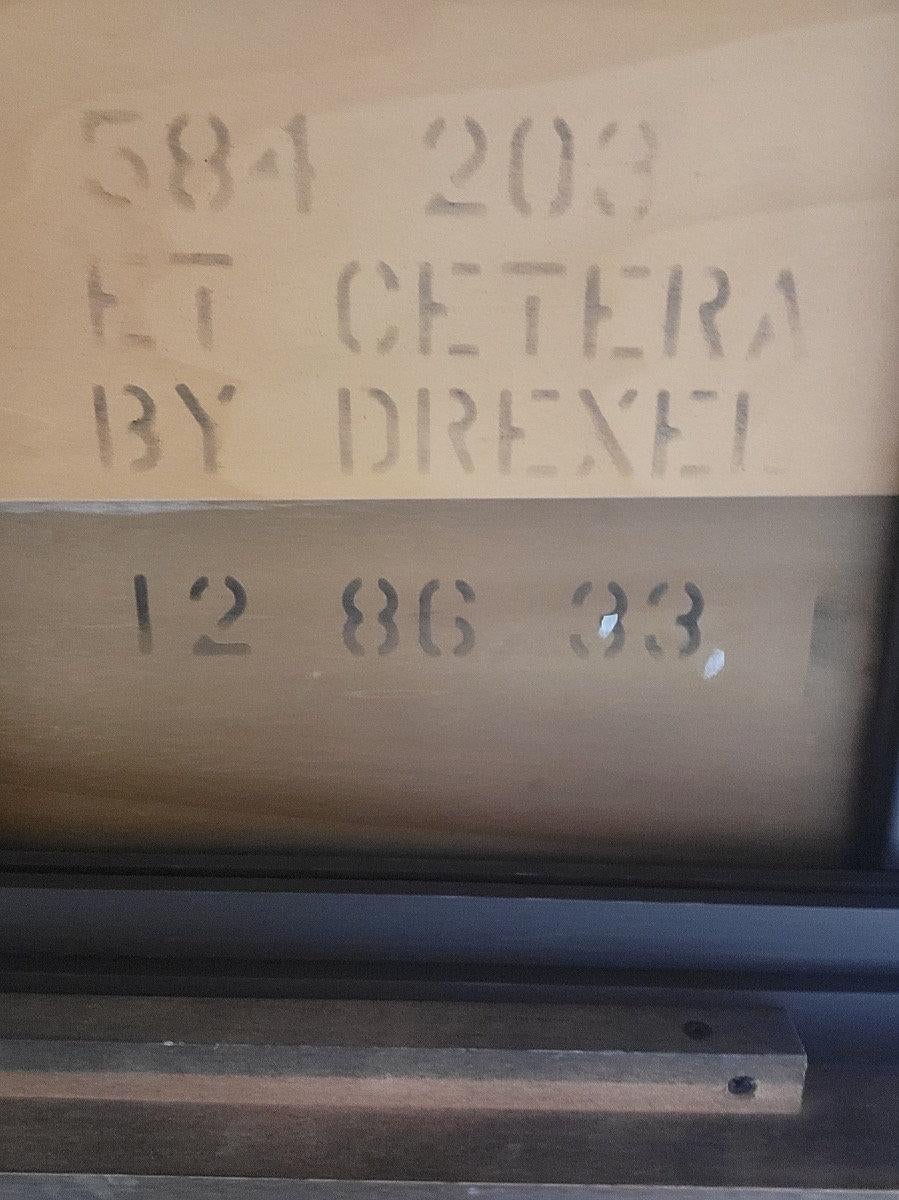 584 203
ET CETERA
BY DREXEL
12 86 33